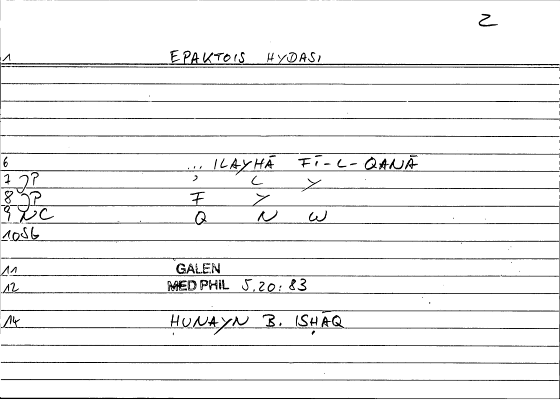 2
1 EPAKTOIS HYDASI
6 ... ILAYHĀ FĪ-L-QANĀ
7 JP ʾ L Y
8 JP F Y
9 NC Q N W
10 SG
11 GALEN
12 MED PHIL 5,20: 83
14 ḤUNAYN B. ISḤĀQ